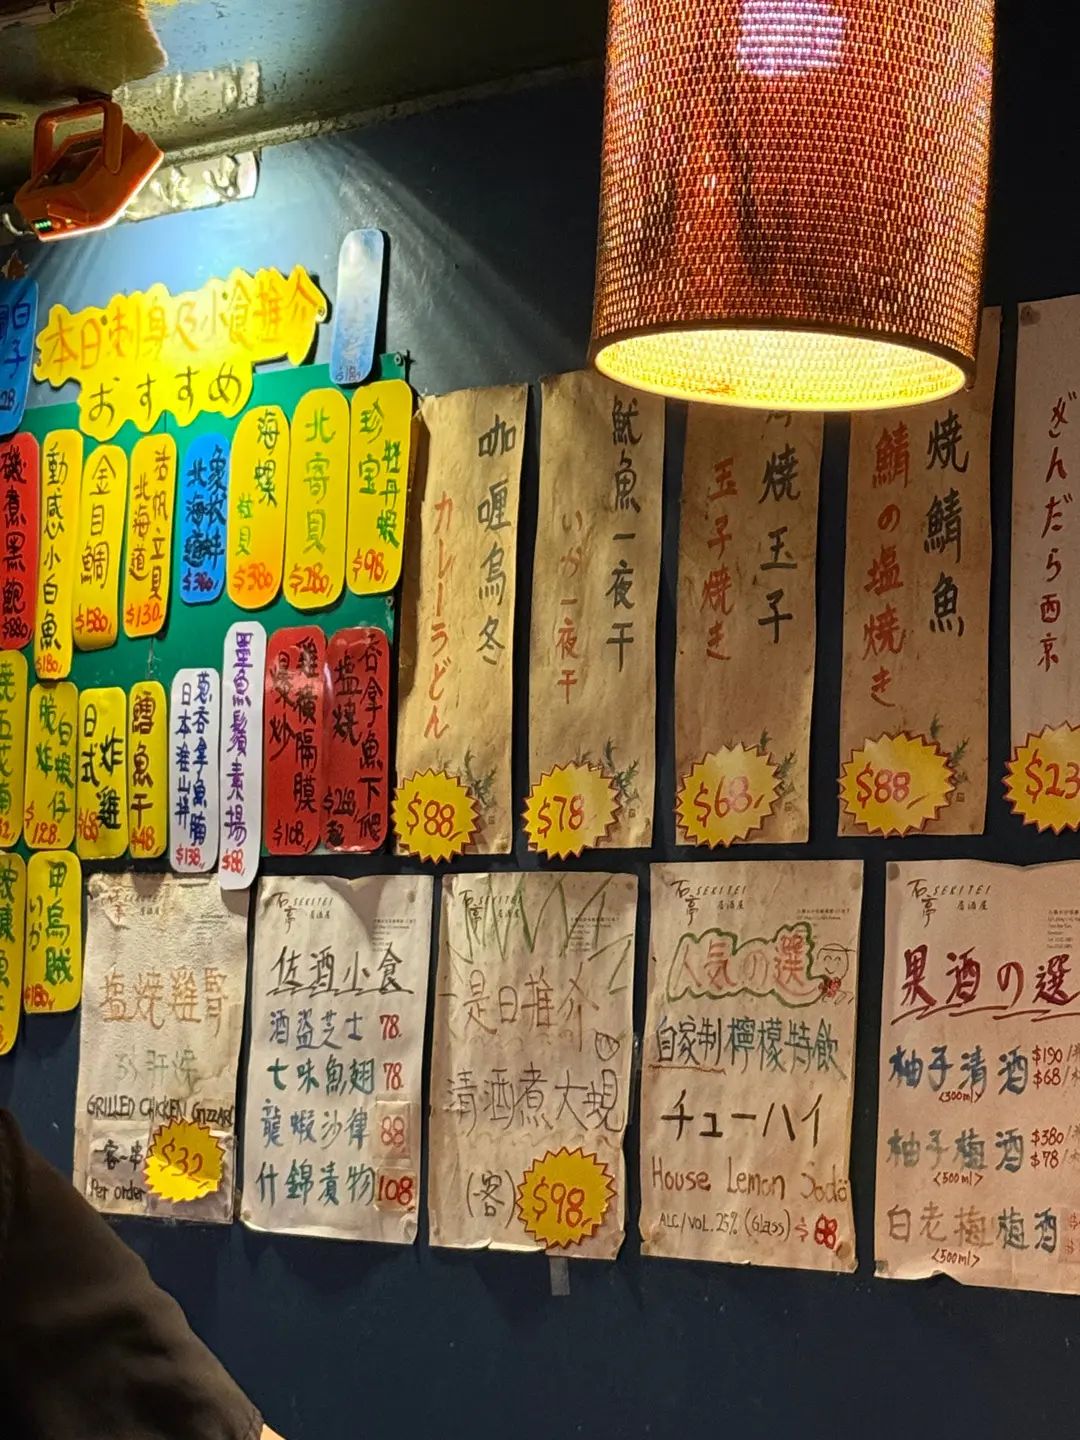 本日刺身及小食推介
おすすめ
白子
珍宝牡丹蝦
$98
北寄貝
$280
海螺
$380
北海道
$380
活帆立貝
北海道
$130
金目鯛
$580
動感小白魚
$180
磯煮黑鮑
$880
吞拿魚下
塩焼
$268起
雞橫隔膜
爆炒
$108
墨魚鬚素揚
$88
葱吞拿魚腩
日本淮山拼
$138
鱈魚干
$48
日式炸雞
$168
脆炸白蝦仔
$128
甲烏賊
いか
$180
咖喱烏冬
カレーうどん
$88
魷魚一夜干
いか一夜干
$78
焼玉子
玉子焼き
$68
焼鯖魚
鯖の塩焼き
$88
ぎんだら西京
$23
石亭 SEKITEI
居酒屋
塩焼雞腎
GRILLED CHICKEN GIZZARD
一客一串
Per order
$32
石亭 SEKITEI
居酒屋
佐酒小食
酒盗芝士 78
七味魚翅 78
龍蝦沙律 88
什錦漬物 108
石亭 SEKITEI
居酒屋
是日推介
清酒煮大蜆
(客)
$98
石亭 SEKITEI
居酒屋
人気の選
自家制檸檬特飲
チューハイ
House Lemon Soda
ALC/VOL. 25% (Glass) $88
石亭 SEKITEI
居酒屋
果酒の選
柚子清酒 $190
$68
<300ml>
柚子梅酒 $380
$78
<500ml>
白老梅梅酒
<500ml>